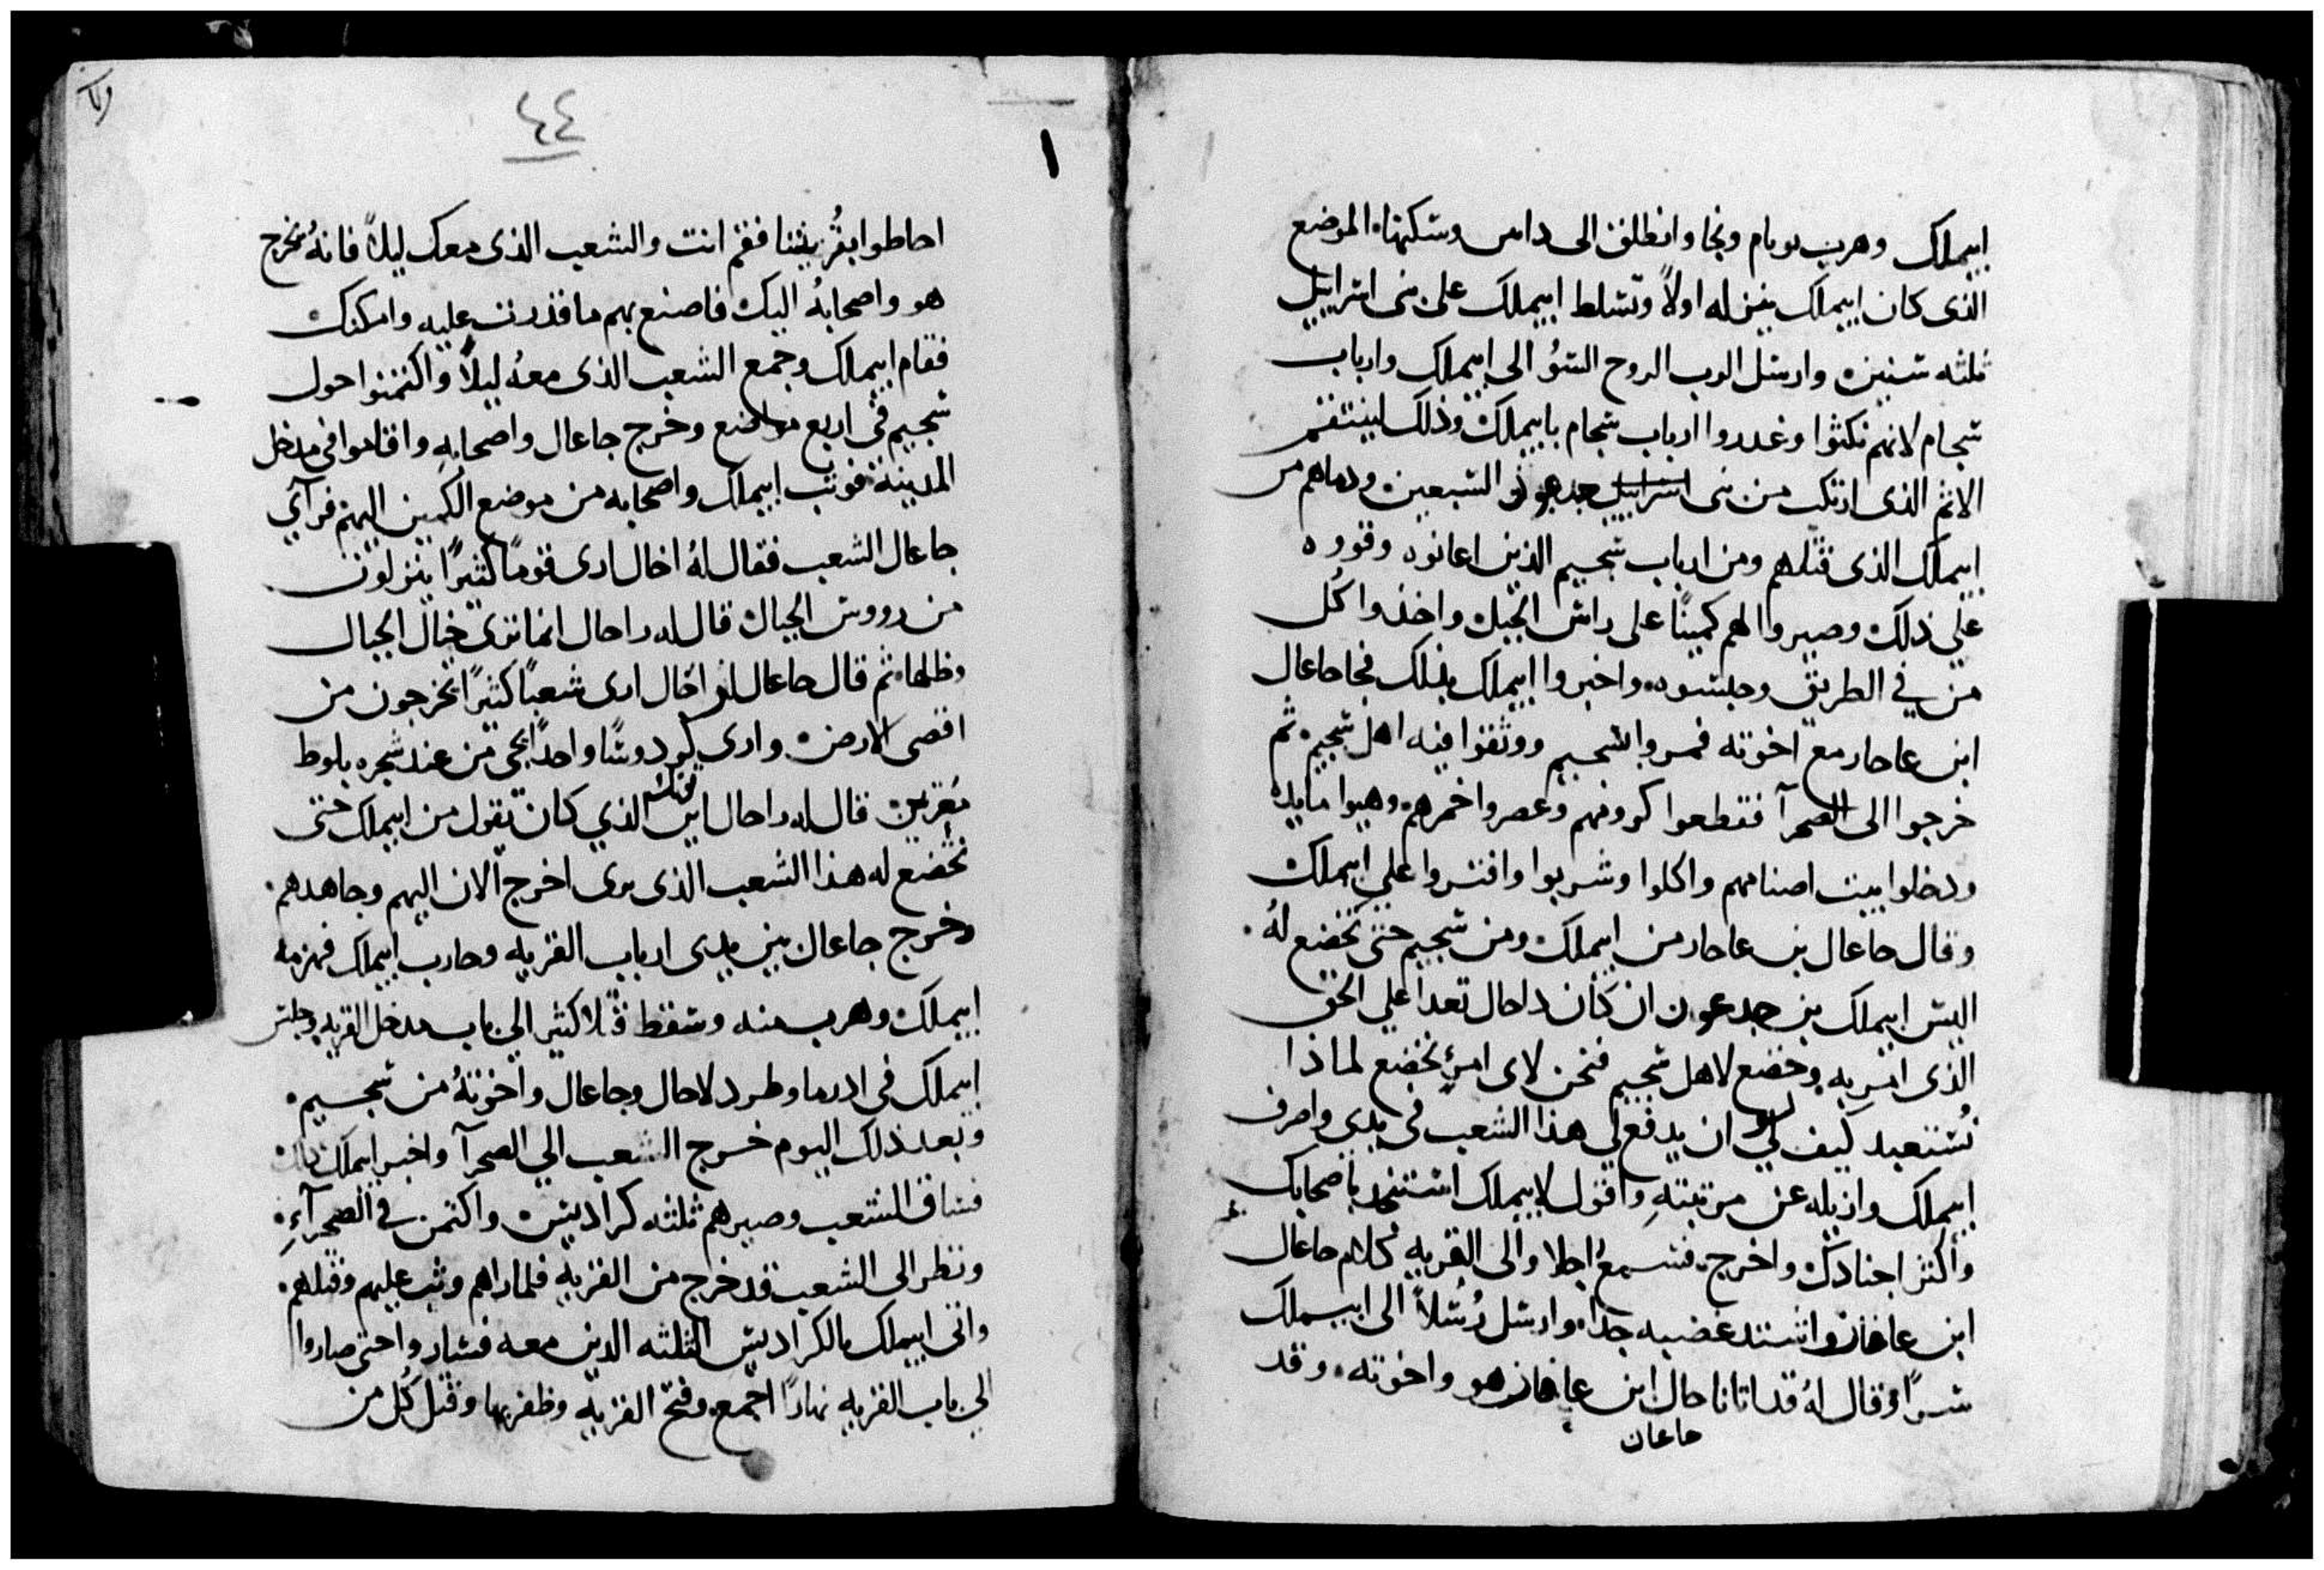 ابيملك وهرب يوبام ونجا وانطلق الى دامس وسكنها الموضع
الذى كان ابيملك ينزله اولاً وتسلط ابيملك على بنى اسراييل
ثلثه سنين وارسل الرب الروح السؤ الى ابيملك وارباب
سجام لانهم نكثوا وغدروا ارباب سجام بابيملك وذلك لينتقم
الاثم الذى ارتكب من بنى اسراييل جدعون السبعين ودماهم من
ابيملك الذى قتلهم ومن ارباب سجيم الذين اعانوه وقووه
علي ذلك وصيروا لهم كمينًا على راس الجبل واخذوا كل
من في الطريق وحبسوه واخبروا ابيملك بذلك فجا جاعال
ابن عاحار مع اخوته فمروا بسجيم ووثقوا فيه اهل سجيم ثم
خرجوا الى الصحرآ فقطعوا كرومهم وعصروا خمرهم وهيوا مايده
ودخلوا بيت اصنامهم واكلوا وشربوا وافتروا علي ابيملك
وقال جاعال بن عاحار من ابيملك ومن سجيم حتى نخضع لهُ
اليس ابيملك بن جدعون ان كان داحال تعدا علي الحق
الذى امر به وخضع لاهل سجيم فنحن لاى امرٍ نخضع لماذا
نستعبد كيف لي ان يدفع لى هذا الشعب فى يدي واصرف
ابيملك وازيله عن مرتبتهِ واقول لابيملك استنجد باصحابك
واكثر اجنادك واخرج فسمع اجلا والى القريه كلام جاعال
ابن عاحار واشتد غضبه جدًا وارسل رُسلاً الى ابيملك
سرًا وقال لهُ قد اتانا حال ابن عاحار هو واخوته وقد
جاعال
٤٤
احاطوا بقريتنا فقم انت والشعب الذى معك ليلاً فانهُ يخرج
هو واصحابهُ اليك فاصنع بهم ما قدرت عليه وامكنك
فقام ابيملك وجمع الشعب الذى معهُ ليلاً واكتمنوا حول
سجيم فى اربع مواضع وخرج جاعال واصحابهِ واقاموا فى مدخل
المدينة فوثب ابيملك واصحابه من موضع الكمين اليهم فرآي
جاعال الشعب فقال لهُ اخال ارى قومًا كثيرًا ينزلون
من رووس الجبال قال له داحال انما ترى خيال الجبال
وظلها ثم قال جاعال انى اخال ارى شعبًا كثيرًا يخرجون من
اقصى الارض وارى كردوسًا واحدًا يجى من عند شجره بلوط
مقربين قال له داحال اين فمك الذي كان يقول من ابيملك حتى
نخضع له هذا الشعب الذى برى اخرج الان اليهم وجاهدهم
وخرج جاعال بين يدى ارباب القريه وحارب ابيملك فهزمه
ابيملك وهرب منه وسقط قتلا كثير الى باب مدخل القريه وجلس
ابيملك فى ادرما وطرد لاحال وجاعال واخوتهُ من سجيم
وبعد ذلك اليوم خرج الشعب الي الصحرآ واخبر ابيملك بذلك
فساق الشعب وصيرهم ثلثه كراديس واكتمن في الصحرآءِ
ونظر الى الشعب قد خرج من القريه فلما راهم وثب عليهم وقتلهم
واتى ابيملك بالكراديس الثلثه الذين معه فساروا حتى صاروا
الى باب القريه نهارًا اجمع وفتح القريه وظفر بها وقتل كُل من